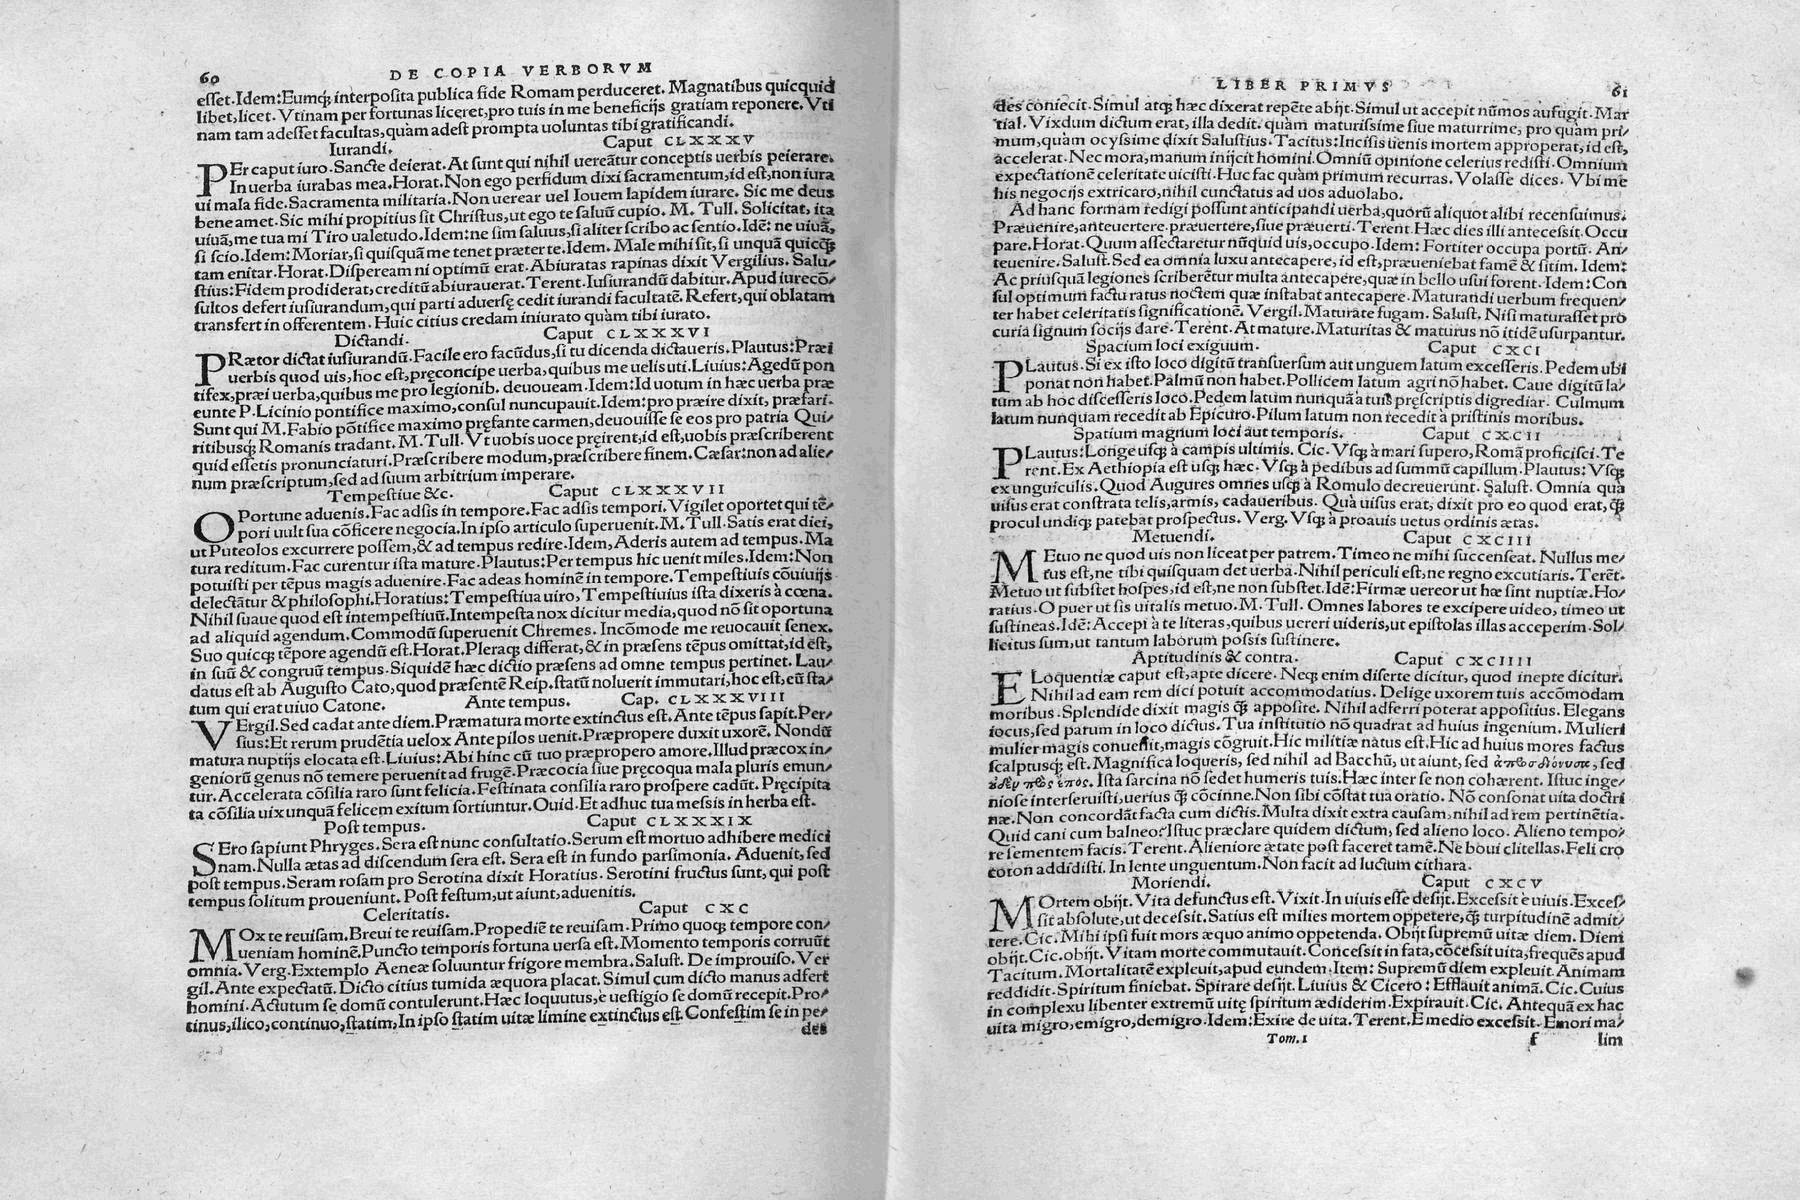 60 DE COPIA VERBORVM
esset. Idem: Eumq́; interposita publica fide Romam perduceret. Magnatibus quicquid
libet, licet. Vtinam per fortunas liceret, pro tuis in me beneficijs gratiam reponere. Vti
nam tam adesset facultas, quàm adest prompta uoluntas tibi gratificandi.
Iurandi. Caput CLXXXV
PEr caput iuro. Sancte deierat. At sunt qui nihil uereãtur conceptis uerbis peierare.
In uerba iurabas mea. Horat. Non ego perfidum dixi sacramentum, id est, non iura
ui mala fide. Sacramenta militaria. Non uerear uel Iouem lapidem iurare. Sic me deus
bene amet. Sic mihi propitius sit Christus, ut ego te saluũ cupio. M. Tull. Solicitat, ita
uiuã, me tua mi Tiro ualetudo. Idem: ne sim saluus, si aliter scribo ac sentio. Idẽ: ne uiuã,
si scio. Idem: Moriar, si quisquã me tenet præter te. Idem. Male mihi sit, si unquã quicq̃
tam enitar. Horat. Dispeream ni optimũ erat. Abiuratas rapinas dixit Vergilius. Salu-
stius: Fidem prodiderat, creditũ abiurauerat. Terent. Iusiurandũ dabitur. Apud iurecõ-
sultos defert iusiurandum, qui parti aduersę cedit iurandi facultatẽ. Refert, qui oblatam
transfert in offerentem. Huic citius credam iniurato quàm tibi iurato.
Dictandi. Caput CLXXXVI
PRætor dictat iusiurandũ. Facile ero facũdus, si tu dicenda dictaueris. Plautus: Præi
uerbis quod uis, hoc est, pręconcipe uerba, quibus me uelis uti. Liuius: Agedũ pon
tifex, præi uerba, quibus me pro legionib. deuoueam. Idem: Id uotum in hæc uerba præ
eunte P. Licinio pontifice maximo, consul nuncupauit. Idem: pro præire dixit, præfari.
Sunt qui M. Fabio põtifice maximo pręfante carmen, deuouisse se eos pro patria Qui-
ritibusq́; Romanis tradant. M. Tull. Vt uobis uoce pręirent, id est, uobis præscriberent
quid essetis pronunciaturi. Præscribere modum, præscribere finem. Cæsar: non ad alie-
num præscriptum, sed ad suum arbitrium imperare.
Tempestiue &c. Caput CLXXXVII
OPortune aduenis. Fac adsis in tempore. Fac adsis tempori. Vigilet oportet qui tẽ-
pori uult sua cõficere negocia. In ipso articulo superuenit. M. Tull. Satis erat diei,
ut Puteolos excurrere possem, & ad tempus redire. Idem, Aderis autem ad tempus. Ma
tura reditum. Fac curentur ista mature. Plautus: Per tempus hic uenit miles. Idem: Non
potuisti per tẽpus magis aduenire. Fac adeas hominẽ in tempore. Tempestiuis cõuiuijs
delectãtur & philosophi. Horatius: Tempestiua uiro, Tempestiuius ista dixeris à cœna.
Nihil suaue quod est intempestiuũ. Intempesta nox dicitur media, quod nõ sit oportuna
ad aliquid agendum. Commodũ superuenit Chremes. Incõmode me reuocauit senex.
Suo quicq; tẽpore agendũ est. Horat. Pleraq; differat, & in præsens tẽpus omittat, id est,
in suũ & congruũ tempus. Siquidẽ hæc dictio præsens ad omne tempus pertinet. Lau-
datus est ab Augusto Cato, quod præsentẽ Reip. statũ noluerit immutari, hoc est, eũ sta-
tum qui erat uiuo Catone. Ante tempus. Cap. CLXXXVIII
VErgil. Sed cadat ante diem. Præmatura morte extinctus est. Ante tẽpus sapit. Per-
sius: Et rerum prudẽtia uelox Ante pilos uenit. Præpropere duxit uxorẽ. Nondũ
matura nuptijs elocata est. Liuius: Abi hinc cũ tuo præpropero amore. Illud præcox in-
geniorũ genus nõ temere peruenit ad frugẽ. Præcocia siue pręcoqua mala pluris emun-
tur. Accelerata cõsilia raro sunt felicia. Festinata consilia raro prospere cadũt. Pręcipita
ta cõsilia uix unquã felicem exitum sortiuntur. Ouid. Et adhuc tua messis in herba est.
Post tempus. Caput CLXXXIX
SEro sapiunt Phryges. Sera est nunc consultatio. Serum est mortuo adhibere medici
nam. Nulla ætas ad discendum sera est. Sera est in fundo parsimonia. Aduenit, sed
post tempus. Seram rosam pro Serotina dixit Horatius. Serotini fructus sunt, qui post
tempus solitum proueniunt. Post festum, ut aiunt, aduenitis.
Celeritatis. Caput CXC
MOx te reuisam. Breui te reuisam. Propediẽ te reuisam. Primo quoq; tempore con-
ueniam hominẽ. Puncto temporis fortuna uersa est. Momento temporis corruũt
omnia. Verg. Extemplo Aeneæ soluuntur frigore membra. Salust. De improuiso. Ver
gil. Ante expectatũ. Dicto citius tumida æquora placat. Simul cum dicto manus adfert
homini. Actutum se domũ contulerunt. Hæc loquutus, è uestigio se domũ recepit. Pro-
tinus, ilico, continuo, statim, In ipso statim uitæ limine extinctus est. Confestim se in pe-
des
LIBER PRIMVS 61
des coniecit. Simul atq; hæc dixerat repẽte abijt. Simul ut accepit nũmos aufugit. Mar
tial. Vixdum dictum erat, illa dedit. quàm maturissime siue maturrime, pro quàm pri-
mum, quàm ocyssime dixit Salustius. Tacitus: Incisis uenis mortem approperat, id est,
accelerat. Nec mora, manum inijcit homini. Omniũ opinione celerius redisti. Omnium
expectationẽ celeritate uicisti. Huc fac quàm primum recurras. Volasse dices. Vbi me
his negocijs extricaro, nihil cunctatus ad uos aduolabo.
Ad hanc formam redigi possunt anticipandi uerba, quorũ aliquot alibi recensuimus.
Præuenire, anteuertere. præuertere, siue præuerti. Terent. Hæc dies illi antecessit. Occu
pare. Horat. Quum assectaretur nũquid uis, occupo. Idem: Fortiter occupa portũ. An-
teuenire. Salust. Sed ea omnia luxu antecapere, id est, præueniebat famẽ & sitim. Idem:
Ac priusquã legiones scriberẽtur multa antecapere, quæ in bello usui forent. Idem: Con
sul optimum factu ratus noctem quæ instabat antecapere. Maturandi uerbum frequen-
ter habet celeritatis significationẽ. Vergil. Maturate fugam. Salust. Nisi maturasset pro
curia signum socijs dare. Terent. At mature. Maturitas & maturus nõ itidẽ usurpantur.
Spacium loci exiguum. Caput CXCI
PLautus. Si ex isto loco digitũ transuersum aut unguem latum excesseris. Pedem ubi
ponat non habet. Palmũ non habet. Pollicem latum agri nõ habet. Caue digitũ la-
tum ab hoc discesseris loco. Pedem latum nunquã à tuis pręscriptis digrediar. Culmum
latum nunquam recedit ab Epicuro. Pilum latum non recedit à pristinis moribus.
Spatium magnum loci aut temporis. Caput CXCII
PLautus: Longe usq; à campis ultimis. Cic. Vsq; à mari supero, Romã proficisci. Te
rent. Ex Aethiopia est usq; hæc. Vsq; à pedibus ad summũ capillum. Plautus: Vsq;
ex unguiculis. Quod Augures omnes usq; à Romulo decreuerunt. Salust. Omnia qua
uisus erat constrata telis, armis, cadaueribus. Quà uisus erat, dixit pro eo quod erat, q̃
procul undiq; patebat prospectus. Verg. Vsq; à proauis uetus ordinis ætas.
Metuendi. Caput CXCIII
MEtuo ne quod uis non liceat per patrem. Timeo ne mihi succenseat. Nullus me-
tus est, ne tibi quisquam det uerba. Nihil periculi est, ne regno excutiaris. Terẽt.
Metuo ut substet hospes, id est, ne non substet. Idẽ: Firmæ uereor ut hæ sint nuptiæ. Ho-
ratius. O puer ut sis uitalis metuo. M. Tull. Omnes labores te excipere uideo, timeo ut
sustineas. Idẽ: Accepi à te literas, quibus uereri uideris, ut epistolas illas acceperim. Sol-
licitus sum, ut tantum laborum possis sustinere.
Aptitudinis & contra. Caput CXCIIII
ELoquentiæ caput est, apte dicere. Neq; enim diserte dicitur, quod inepte dicitur.
Nihil ad eam rem dici potuit accommodatius. Delige uxorem tuis accõmodam
moribus. Splendide dixit magis q̃ apposite. Nihil adferri poterat appositius. Elegans
iocus, sed parum in loco dictus. Tua institutio nõ quadrat ad huius ingenium. Mulieri
mulier magis conuenit, magis cõgruit. Hic militiæ natus est. Hic ad huius mores factus
scalptusq; est. Magnifica loqueris, sed nihil ad Bacchũ, ut aiunt, sed ἀπροσδιόνυσα, sed
οὐδὲν πρὸς ἔπος. Ista sarcina nõ sedet humeris tuis. Hæc inter se non cohærent. Istuc inge-
niose interseruisti, uerius q̃ cõcinne. Non sibi cõstat tua oratio. Nõ consonat uita doctri
næ. Non concordãt facta cum dictis. Multa dixit extra causam, nihil ad rem pertinẽtia.
Quid cani cum balneo? Istuc præclare quidem dictum, sed alieno loco. Alieno tempo-
re sementem facis. Terent. Alieniore ætate post faceret tamẽ. Ne boui clitellas. Feli cro
coton addidisti. In lente unguentum. Non facit ad luctum cithara.
Moriendi. Caput CXCV
MOrtem obijt. Vita defunctus est. Vixit. In uiuis esse desijt. Excessit è uiuis. Exces-
sit absolute, ut decessit. Satius est milies mortem oppetere, q̃ turpitudinẽ admit-
tere. Cic. Mihi ipsi fuit mors æquo animo oppetenda. Obijt supremũ uitæ diem. Diem
obijt. Cic. obijt. Vitam morte commutauit. Concessit in fata, cõcessit uita, frequẽs apud
Tacitum. Mortalitatẽ expleuit, apud eundem. Item: Supremũ diem expleuit. Animam
reddidit. Spiritum finiebat. Spirare desijt. Liuius & Cicero: Efflauit animã. Cic. Cuius
in complexu libenter extremũ uitę spiritum ædiderim. Expirauit. Cic. Antequã ex hac
uita migro, emigro, demigro. Idem: Exire de uita. Terent. E medio excessit. Emori ma-
Tom. 1 f lim